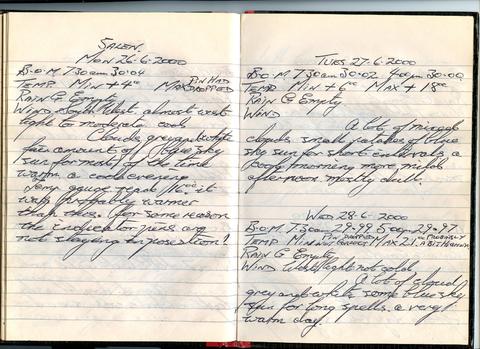 SALEN.
MON 26·6·2000
B.O.M 7·30am 30·04
TEMP MIN +4°° MAX PIN HAD DROPPED
RAIN G Empty
WIND South West, almost west
light to moderate cool
Clouds grey and white
fair amount of blue sky
sun for most of the time
warm a cool evening
Temp gauge read 16°° it
was probably warmer
than this. (for some reason
the indicator pins are
not staying in position!
TUES 27·6·2000
B.O.M. 7·30am 30·02 4·00pm 30·00
TEMP MIN +6°° MAX +18°°
RAIN G Empty
WIND
A lot of mixed
clouds small patches of blue
sky sun for short intervals a
cool morning more mild
afternoon mostly dull.
WED 28·6·2000
B.O.M. 7·30am 29·99 5·00pm 29·97
TEMP MIN PIN DROPPED NOT CORRECT MAX 21°° PROBABLY A BIT HIGHER
RAIN G Empty
WIND West light not cold
A lot of cloud
grey and white some blue sky
sun for long spells. a very
warm day.